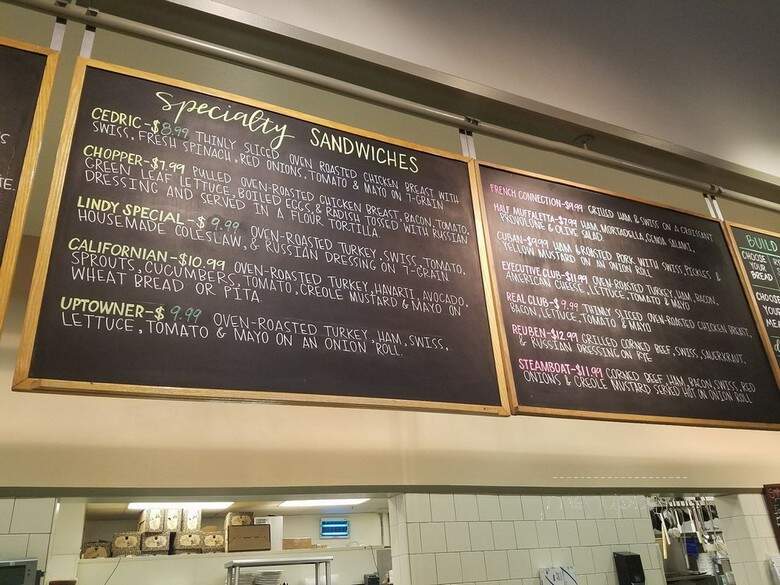 S
TE.
Specialty SANDWICHES
CEDRIC-$8.99 THINLY SLICED OVEN ROASTED CHICKEN BREAST WITH
SWISS, FRESH SPINACH, RED ONIONS, TOMATO & MAYO ON 7-GRAIN
CHOPPER-$7.99 PULLED OVEN-ROASTED CHICKEN BREAST, BACON, TOMATO,
GREEN LEAF LETTUCE, BOILED EGGS, & RADISH TOSSED WITH RUSSIAN
DRESSING AND SERVED IN A FLOUR TORTILLA.
LINDY SPECIAL-$9.99 OVEN-ROASTED TURKEY, SWISS, TOMATO,
HOUSEMADE COLESLAW, & RUSSIAN DRESSING ON 7-GRAIN
CALIFORNIAN-$10.99 OVEN-ROASTED TURKEY, HAVARTI, AVOCADO,
SPROUTS, CUCUMBERS, TOMATO, CREOLE MUSTARD & MAYO ON
WHEAT BREAD OR PITA
UPTOWNER-$9.99 OVEN-ROASTED TURKEY, HAM, SWISS,
LETTUCE, TOMATO & MAYO ON AN ONION ROLL
FRENCH CONNECTION-$9.99 GRILLED HAM & SWISS ON A CROISSANT
HALF MUFFALETTA-$7.99 HAM, MORTADELLA, GENOA SALAMI,
PROVOLONE & OLIVE SALAD
CUBAN-$9.99 HAM & ROASTED PORK WITH SWISS, PICKLES, &
YELLOW MUSTARD ON AN ONION ROLL
EXECUTIVE CLUB-$11.99 OVEN-ROASTED TURKEY, HAM, BACON,
AMERICAN CHEESE, LETTUCE, TOMATO & MAYO
REAL CLUB-$9.99 THINLY SLICED OVEN-ROASTED CHICKEN BREAST,
BACON, LETTUCE, TOMATO & MAYO
REUBEN-$12.99 GRILLED CORNED BEEF, SWISS, SAUERKRAUT,
& RUSSIAN DRESSING ON RYE
STEAMBOAT-$11.99 CORNED BEEF, HAM, BACON, SWISS, RED
ONIONS & CREOLE MUSTARD SERVED HOT ON ONION ROLL
BUILD
CHOOSE
YOUR
BREAD
CHOOSE
YOUR